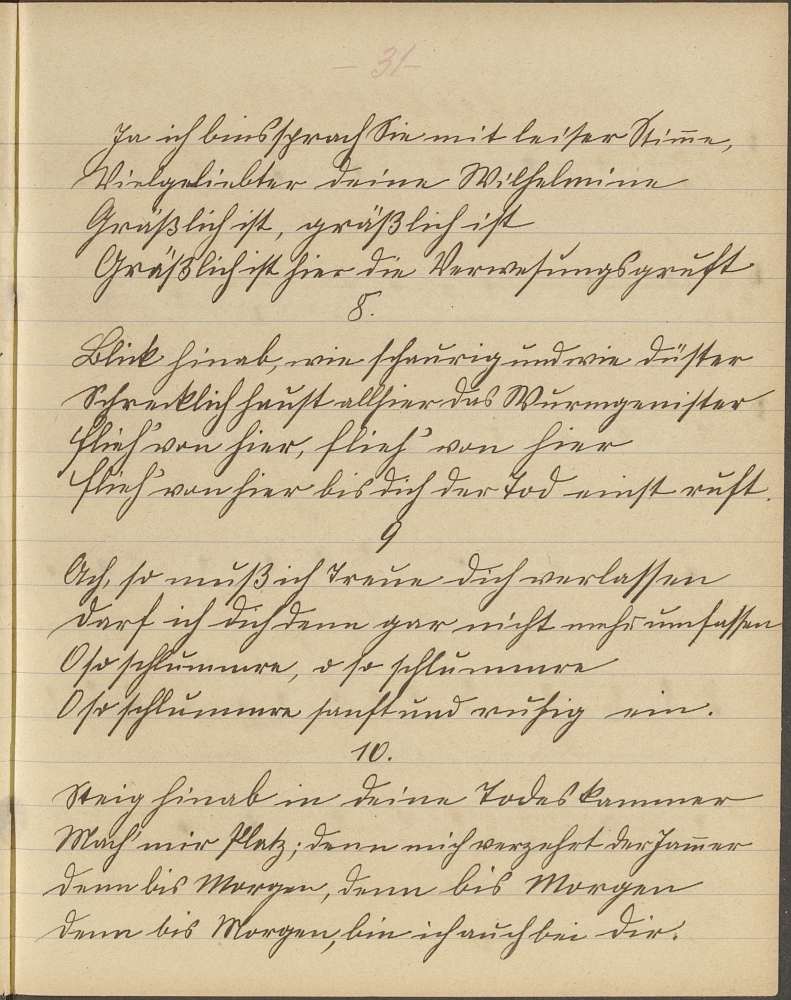 - 31 -
Ja ich bins sprach Sie mit leiser Stim̄e,
Vielgeliebter deine Wilhelmine
Gräßlich ist, gräßlich ist
Gräßlich ist hier die Verwesungsgruft
8.
Blick hinab, wie schaurig und wie düster
Schrecklich haust allhier das Wurmgenister
flieh' von hier, flieh' von hier
flieh' von hier bis dich der Tod einst ruft.
9
Ach, so muß ich Treue dich verlassen
darf ich dich denn gar nicht mehr umfassen
O so schlummre, o so schlummre
O so schlummre sanft und ruhig ein.
10.
Steig hinab in deine Todeskammer
Mach' mir Platz; denn mich verzehrt der Jam̄er
denn bis Morgen, denn bis Morgen
denn bis Morgen, bin ich auch bei dir.